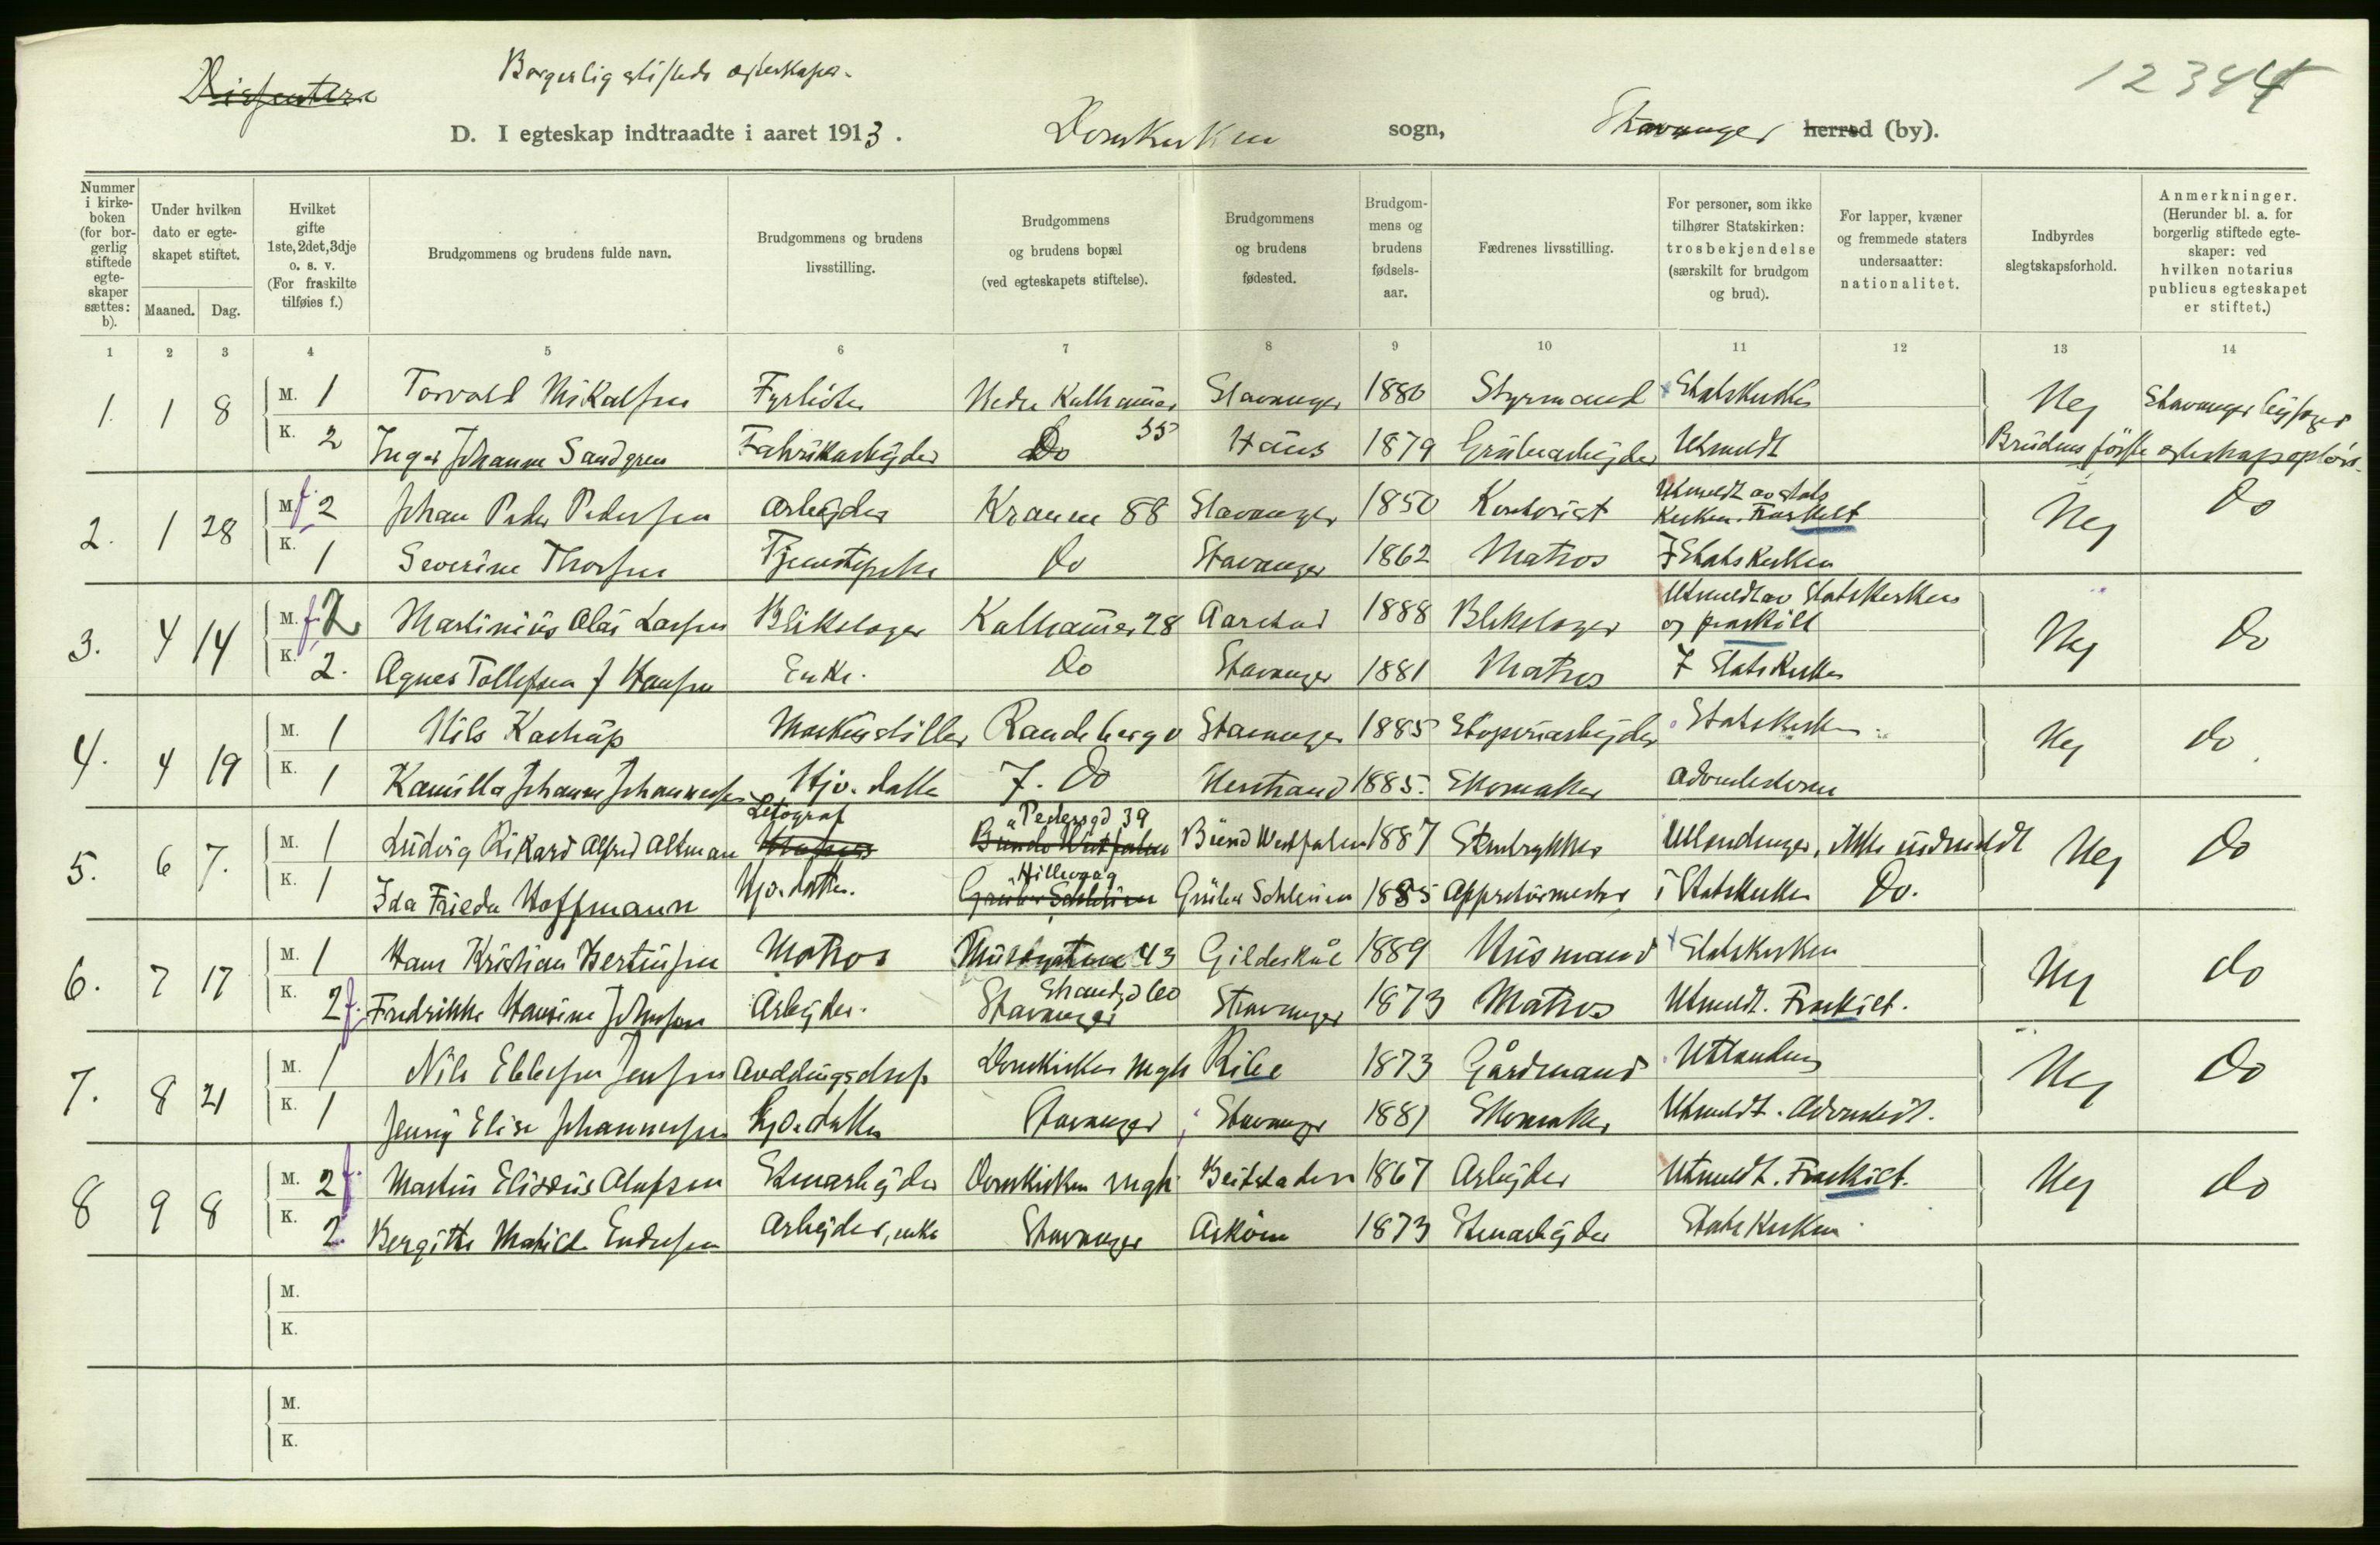 Borgerlig stiftede egteskaper.
Dissentere
12344
D. I egteskap indtraadte i aaret 1913. Domkirken sogn, Stavanger herred (by).
Nummer i kirkeboken (for borgerlig stiftede egteskaper sættes: b).
Under hvilken dato er egteskapet stiftet.
Maaned. Dag.
Hvilket gifte 1ste, 2det, 3dje o. s. v. (For fraskilte tilføies f.)
Brudgommens og brudens fulde navn.
Brudgommens og brudens livsstilling.
Brudgommens og brudens bopæl (ved egteskapets stiftelse).
Brudgommens og brudens fødested.
Brudgommens og brudens fødselsaar.
Fædrenes livsstilling.
For personer, som ikke tilhører Statskirken: trosbekjendelse (særskilt for brudgom og brud).
For lapper, kvæner og fremmede staters undersaatter: nationalitet.
Indbyrdes slegtskapsforhold.
Anmerkninger. (Herunder bl. a. for borgerlig stiftede egteskaper: ved hvilken notarius publicus egteskapet er stiftet.)
1 2 3 4 5 6 7 8 9 10 11 12 13 14
1. 1 8 M. 1 Torvald Mikalsen Fyrbøter Nedre Kalhammer 55 Stavanger 1880 Styrmand Statskirken Nej Stavanger
K. 2 Inger Johanne Sandgren Fabrikarbejder Do Haus 1879 Grubearbejder Utmeldt Brudens første egteskap opløst
2. 1 28 M. f. 2 Johan Peder Pedersen Arbejder 88 Stavanger 1850 Utmeldt av stats Kirken. Fraskilt Nej Do
K. 1 Severine Thorsen Tjenestepike Do Stavanger 1862 Matros I Statskirken
3. 4 14 M. f. 2 Martinius Olai Larsen Blikslager Kalhammer 28 1888 Blikslager Utmeldt av Statskirken og fraskilt Nej Do
K. 2. Agnes Tollefsen f Hansen Enke. Do Stavanger 1881 Matros I Statskirken
4. 4 19 M. 1 Nils Kastrup Maskinstiller Randebergv Stavanger 1885 Støperiarbejder Statskirken Nej do
K. 1 Kamilla Johanne Johannesen Hjv. datter 7. Do 1885. Skomaker Adventisterne
5. 6 7. M. 1 Ludvig Rikard Alfred Altman Litograf Pedersgd 39 Bünde Westfalen Bünd Westfalen 1887 Stentrykker Utlendinger, ikke indmeldt Nej Do
K. 1 Ida Frieda Hoffmann Hjv. datter. Hillevaag Grüben Schlesien 1885 Appreturmester i Statskirken Do.
6. 7 17 M. 1 Hans Kristian Bertinsen Matros 43 Gildeskål 1889 Husmand Statskirken Nej do
K. 2 f. Fredrikke Hansine Johnsen Arbejder. Strandgd 60 Stavanger Stavanger 1873 Matros Utmeldt. Fraskilt.
7. 8 21 M. 1 Nils Ebbesen Jensen Avdelingschef Domkirken mgh Ribe 1873 Gårdmand Utlending Nej Do
K. 1 Jenny Elise Johannesen Hjv. datter Stavanger Stavanger 1881 Skomaker Utmeldt. Adventist.
8 9 8 M. 2 f. Martin Elisæus Olufsen Stenarbejder Domkirken mgh Beitstaden 1867 Arbejder Utmeldt. Fraskilt. Nej do
K. 2. Bergitte Matilde Endresen Arbejder, enke Stavanger Askøen 1873 Stenarbejder Statskirken
M.
K.
M.
K.